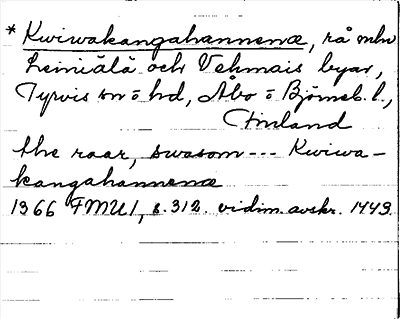 * Kwiwakangahannenæ, rå mln
Leiniälä och Vehmais byar,
Tyrvis sn o hd, Åbo o Björneb. l.,
Finland
the raar, swasom --- Kwiwa-
kangahannenæ
1366 FMU I, s. 312. vidim. avskr. 1449.